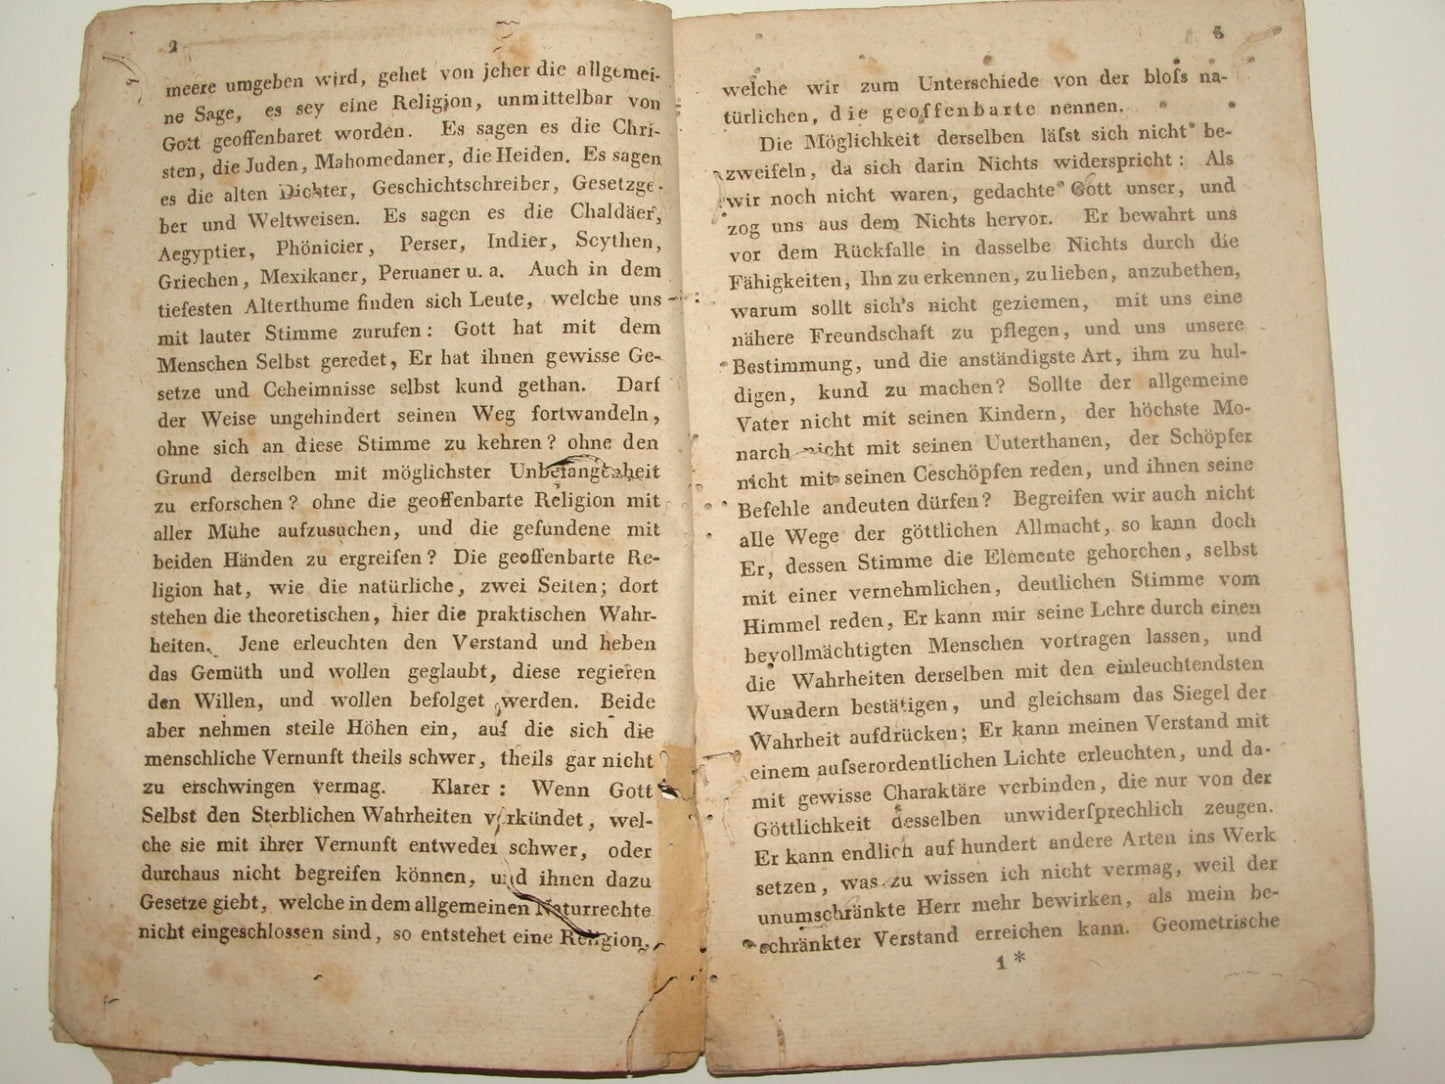 2
meere umgeben wird, gehet von jeher die allgemei-
ne Sage, es sey eine Religion, unmittelbar von
Gott geoffenbaret worden. Es sagen es die Chri-
sten, die Juden, Mahomedaner, die Heiden. Es sagen
es die alten Dichter, Geschichtschreiber, Gesetzge-
ber und Weltweisen. Es sagen es die Chaldäer,
Aegyptier, Phönicier, Perser, Indier, Scythen,
Griechen, Mexikaner, Peruaner u. a. Auch in dem
tiefesten Alterthume finden sich Leute, welche uns
mit lauter Stimme zurufen: Gott hat mit dem
Menschen Selbst geredet, Er hat ihnen gewisse Ge-
setze und Geheimnisse selbst kund gethan. Darf
der Weise ungehindert seinen Weg fortwandeln,
ohne sich an diese Stimme zu kehren? ohne den
Grund derselben mit möglichster Unbefangenheit
zu erforschen? ohne die geoffenbarte Religion mit
aller Mühe aufzusuchen, und die gefundene mit
beiden Händen zu ergreifen? Die geoffenbarte Re-
ligion hat, wie die natürliche, zwei Seiten; dort
stehen die theoretischen, hier die praktischen Wahr-
heiten. Jene erleuchten den Verstand und heben
das Gemüth und wollen geglaubt, diese regieren
den Willen, und wollen befolget werden. Beide
aber nehmen steile Höhen ein, auf die sich die
menschliche Vernunft theils schwer, theils gar nicht
zu erschwingen vermag. Klarer: Wenn Gott
Selbst den Sterblichen Wahrheiten verkündet, wel-
che sie mit ihrer Vernunft entweder schwer, oder
durchaus nicht begreifen können, und ihnen dazu
Gesetze giebt, welche in dem allgemeinen Naturrechte
nicht eingeschlossen sind, so entstehet eine Religion,
3
welche wir zum Unterschiede von der bloſs na-
türlichen, die geoffenbarte nennen.
Die Möglichkeit derselben läſst sich nicht be-
zweifeln, da sich darin Nichts widerspricht: Als
wir noch nicht waren, gedachte Gott unser, und
zog uns aus dem Nichts hervor. Er bewahrt uns
vor dem Rückfalle in dasselbe Nichts durch die
Fähigkeiten, Ihn zu erkennen, zu lieben, anzubethen,
warum sollt sich's nicht geziemen, mit uns eine
nähere Freundschaft zu pflegen, und uns unsere
Bestimmung, und die anständigste Art, ihm zu hul-
digen, kund zu machen? Sollte der allgemeine
Vater nicht mit seinen Kindern, der höchste Mo-
narch nicht mit seinen Uuterthanen, der Schöpfer
nicht mit seinen Geschöpfen reden, und ihnen seine
Befehle andeuten dürfen? Begreifen wir auch nicht
alle Wege der göttlichen Allmacht, so kann doch
Er, dessen Stimme die Elemente gehorchen, selbst
mit einer vernehmlichen, deutlichen Stimme vom
Himmel reden, Er kann mir seine Lehre durch einen
bevollmächtigten Menschen vortragen lassen, und
die Wahrheiten derselben mit den einleuchtendsten
Wundern bestätigen, und gleichsam das Siegel der
Wahrheit aufdrücken; Er kann meinen Verstand mit
einem auſserordentlichen Lichte erleuchten, und da-
mit gewisse Charaktäre verbinden, die nur von der
Göttlichkeit desselben unwiderſprechlich zeugen.
Er kann endlich auf hundert andere Arten ins Werk
setzen, was zu wissen ich nicht vermag, weil der
unumschränkte Herr mehr bewirken, als mein be-
schränkter Verstand erreichen kann. Geometrische
1*